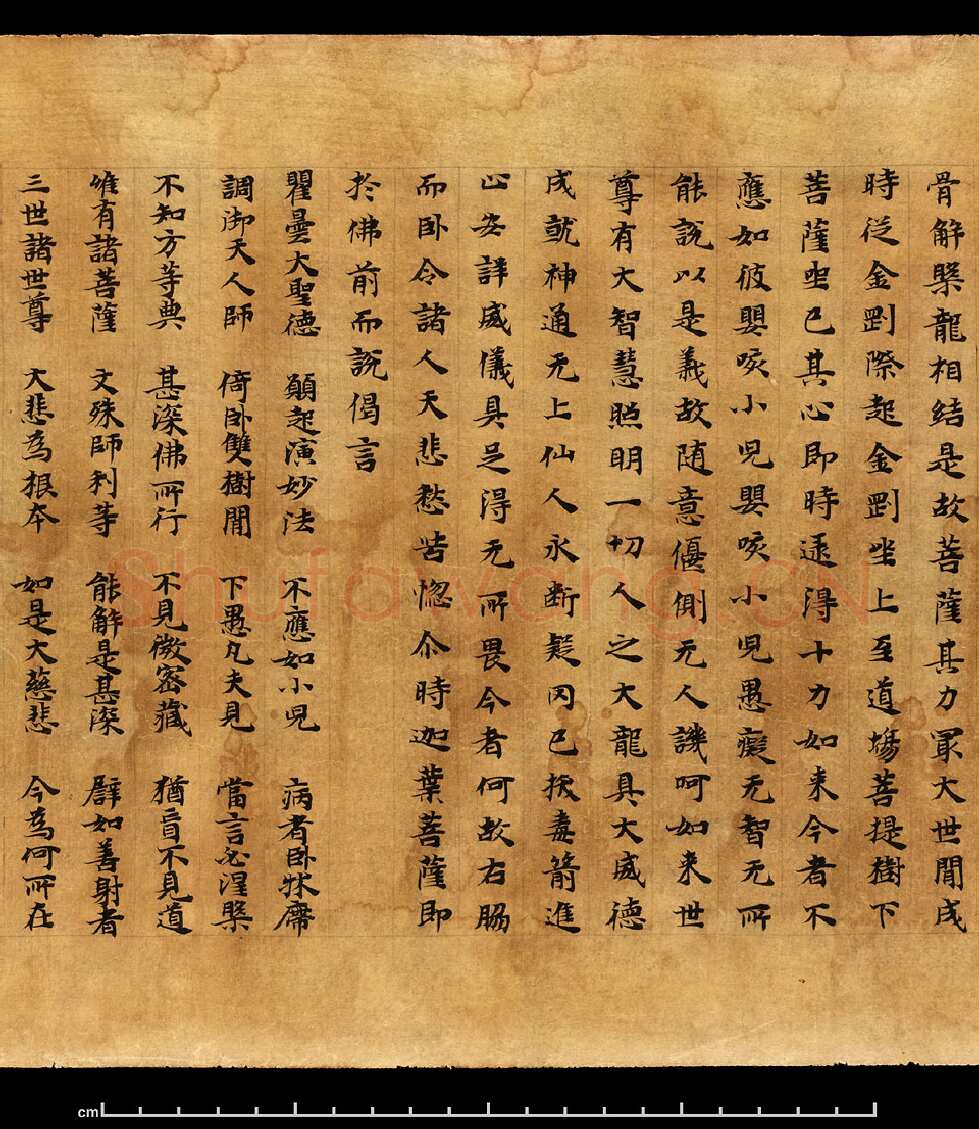 骨解槃龍相結是故菩薩其力冣大世間成
時從金剛際起金剛坐上至道場菩提樹下
菩薩坐已其心即時逮得十力如来今者不
應如彼嬰咳小兒嬰咳小兒愚癡无智无所
能說以是義故随意偃側无人譏呵如来世
尊有大智慧照明一切人之大龍具大威德
成就神通无上仙人永断疑网已拔毒箭進
止安詳威儀具足得无所畏今者何故右脇
而卧令諸人天悲愁苦惚尒時迦葉菩薩即
於佛前而說偈言
瞿曇大聖德 願起演妙法 不應如小兒 病者卧床席
調御天人師 倚卧雙樹間 下愚凡夫見 當言必涅槃
不知方等典 甚深佛所行 不見微密藏 猶盲不見道
唯有諸菩薩 文殊師利等 能解是甚深 譬如善射者
三世諸世尊 大悲為根本 如是大慈悲 今為何所在
Shufawang.CN
cm